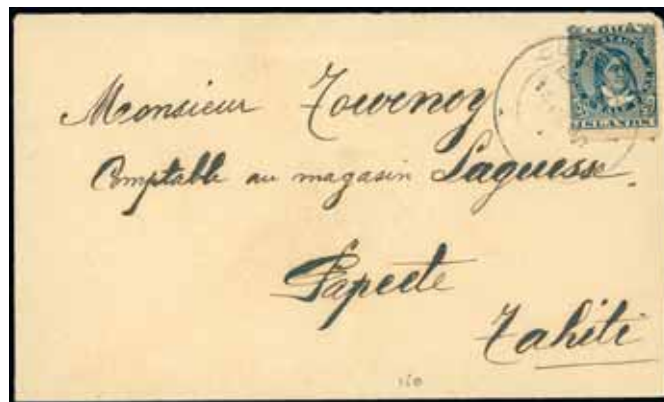 Monsieur Tournoy
Comptable au magasin Laguesse.
Papeete
Tahiti
ISLANDS
150